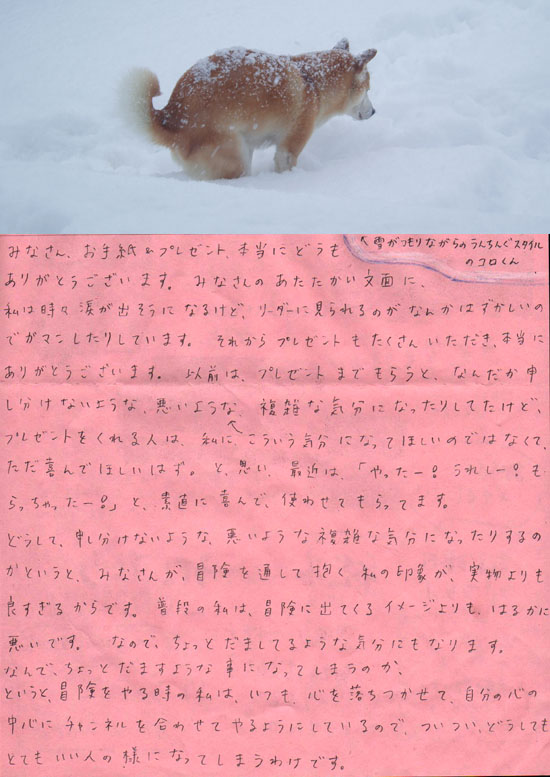 ↖雪がつもりながらのうんちんぐスタイル
のコロくん
みなさん、お手紙&プレゼント、本当にどうも
ありがとうございます。 みなさんのあたたかい文面に、
私は時々涙が出そうになるけど、リーダーに見られるのがなんかはずかしいの
でガマンしたりしています。 それからプレゼントもたくさんいただき、本当に
ありがとうございます。 以前は、プレゼントまでもらうと、なんだか申
し分けないような、悪いような、複雑な気分になったりしてたけど、
プレゼントをくれる人は、私に、こういう気分になってほしいのではなくて、
ただ喜んでほしいはず。と、思い、最近は、「やったー!うれしー!も
らっちゃったー!」と、素直に喜んで、使わせてもらってます。
どうして、申し分けないような、悪いような複雑な気分になったりするの
かというと、みなさんが、冒険を通して抱く私の印象が、実物よりも
良すぎるからです。 普段の私は、冒険に出てくるイメージよりも、はるかに
悪いです。 なので、ちょっとだましてるような気分にもなります。
なんで、ちょっとだますような事になってしまうのか、
というと、冒険をやる時の私は、いつも、心を落ちつかせて、自分の心の
中心にチャンネルを合わせてやるようにしているので、ついつい、どうしても
とてもいい人の様になってしまうわけです。